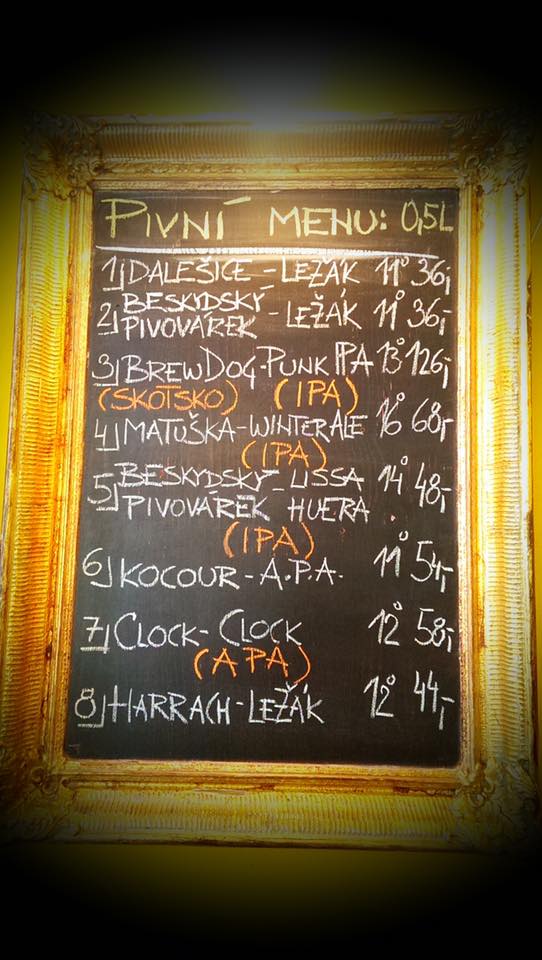 PIVNÍ MENU: 0,5L
1) DALEŠICE - LEŽÁK 11° 36,-
2) BESKYDSKÝ PIVOVÁREK - LEŽÁK 11° 36,-
3) BREWDOG - PUNK IPA 13° 126,-
(SKOTSKO) (IPA)
4) MATUŠKA - WINTER ALE 16° 68,-
(IPA)
5) BESKYDSKÝ - LISSA
PIVOVÁREK HUERA 14° 48,-
(IPA)
6) KOCOUR - A.P.A. 11° 54,-
7) CLOCK - CLOCK 12° 58,-
(APA)
8) HARRACH - LEŽÁK 12° 44,-